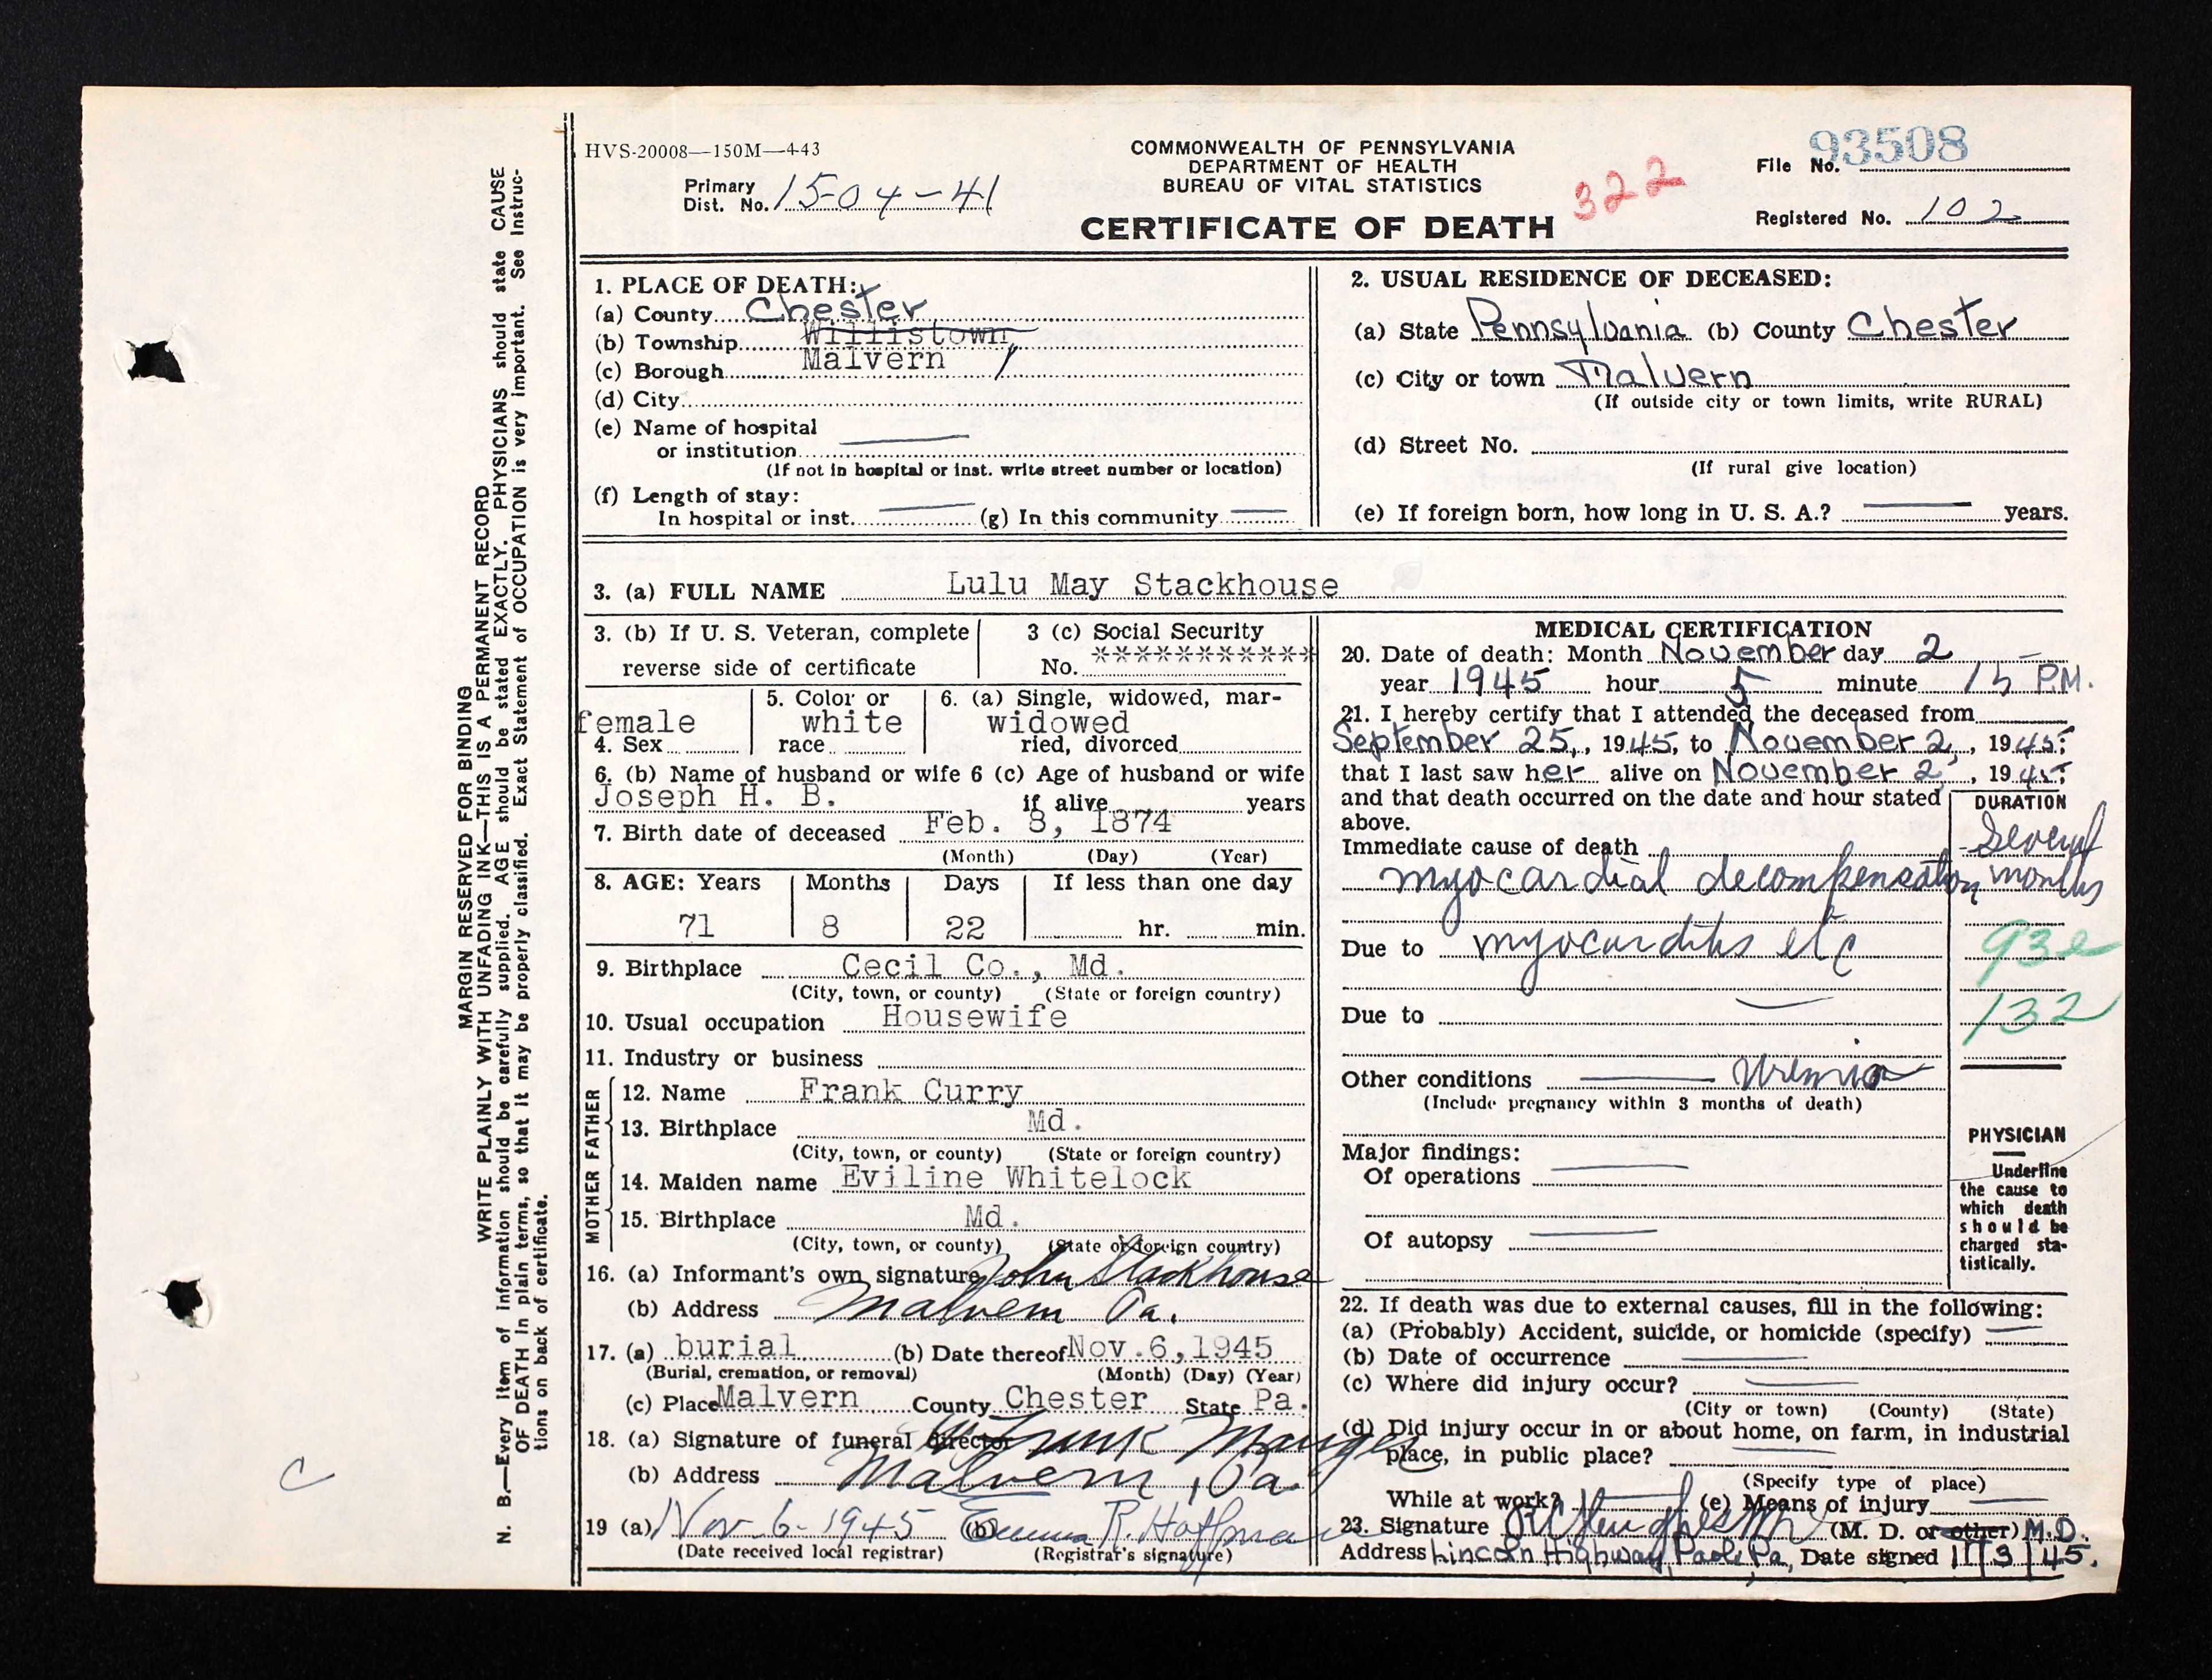 HVS-20008—150M—4-43
Primary
Dist. No. 15-04-41
COMMONWEALTH OF PENNSYLVANIA
DEPARTMENT OF HEALTH
BUREAU OF VITAL STATISTICS
CERTIFICATE OF DEATH
322
File No. 93508
Registered No. 102
MARGIN RESERVED FOR BINDING
WRITE PLAINLY WITH UNFADING INK—THIS IS A PERMANENT RECORD
N. B.—Every item of information should be carefully supplied. AGE should be stated EXACTLY. PHYSICIANS should state CAUSE
OF DEATH in plain terms, so that it may be properly classified. Exact Statement of OCCUPATION is very important. See Instruc-
tions on back of certificate.
C
1. PLACE OF DEATH:
(a) County Chester
(b) Township Willistown
(c) Borough Malvern
(d) City
(e) Name of hospital
or institution
(If not in hospital or inst. write street number or location)
(f) Length of stay:
In hospital or inst. (g) In this community
2. USUAL RESIDENCE OF DECEASED:
(a) State Pennsylvania (b) County Chester
(c) City or town Malvern
(If outside city or town limits, write RURAL)
(d) Street No.
(If rural give location)
(e) If foreign born, how long in U. S. A.? years.
3. (a) FULL NAME Lulu May Stackhouse
3. (b) If U. S. Veteran, complete
reverse side of certificate
3 (c) Social Security
No. ***********
female
4. Sex
5. Color or
white
race
6. (a) Single, widowed, mar-
widowed
ried, divorced
6. (b) Name of husband or wife 6 (c) Age of husband or wife
Joseph H. B. if alive years
7. Birth date of deceased Feb. 8, 1874
(Month) (Day) (Year)
8. AGE: Years Months Days If less than one day
71 8 22 hr. min.
9. Birthplace Cecil Co., Md.
(City, town, or county) (State or foreign country)
10. Usual occupation Housewife
11. Industry or business
FATHER
12. Name Frank Curry
13. Birthplace Md.
(City, town, or county) (State or foreign country)
MOTHER
14. Maiden name Eviline Whitelock
15. Birthplace Md.
(City, town, or county) (State or foreign country)
16. (a) Informant's own signature John Stackhouse
(b) Address Malvern Pa.
17. (a) burial (b) Date thereof Nov.6,1945
(Burial, cremation, or removal) (Month) (Day) (Year)
(c) Place Malvern County Chester State Pa.
18. (a) Signature of funeral director Frank
(b) Address Malvern, Pa.
19 (a) Nov-6-1945 (b) Emma R. Hoffman
(Date received local registrar) (Registrar's signature)
MEDICAL CERTIFICATION
20. Date of death: Month November day 2
year 1945 hour 5 minute 15 P.M.
21. I hereby certify that I attended the deceased from
September 25, 1945, to November 2, 1945;
that I last saw her alive on November 2, 1945;
and that death occurred on the date and hour stated
above.
DURATION
Immediate cause of death Several
myocardial decompensation months
Due to myocarditis etc 93e
Due to 132
Other conditions Uremia
(Include pregnancy within 3 months of death)
Major findings:
Of operations
Of autopsy
PHYSICIAN
Underline
the cause to
which death
should be
charged sta-
tistically.
22. If death was due to external causes, fill in the following:
(a) (Probably) Accident, suicide, or homicide (specify)
(b) Date of occurrence
(c) Where did injury occur?
(City or town) (County) (State)
(d) Did injury occur in or about home, on farm, in industrial
place, in public place?
(Specify type of place)
While at work? (e) Means of injury
23. Signature (M. D. or other) M.D.
Address Lincoln Highway, Paoli, Pa, Date signed 11/3/45.